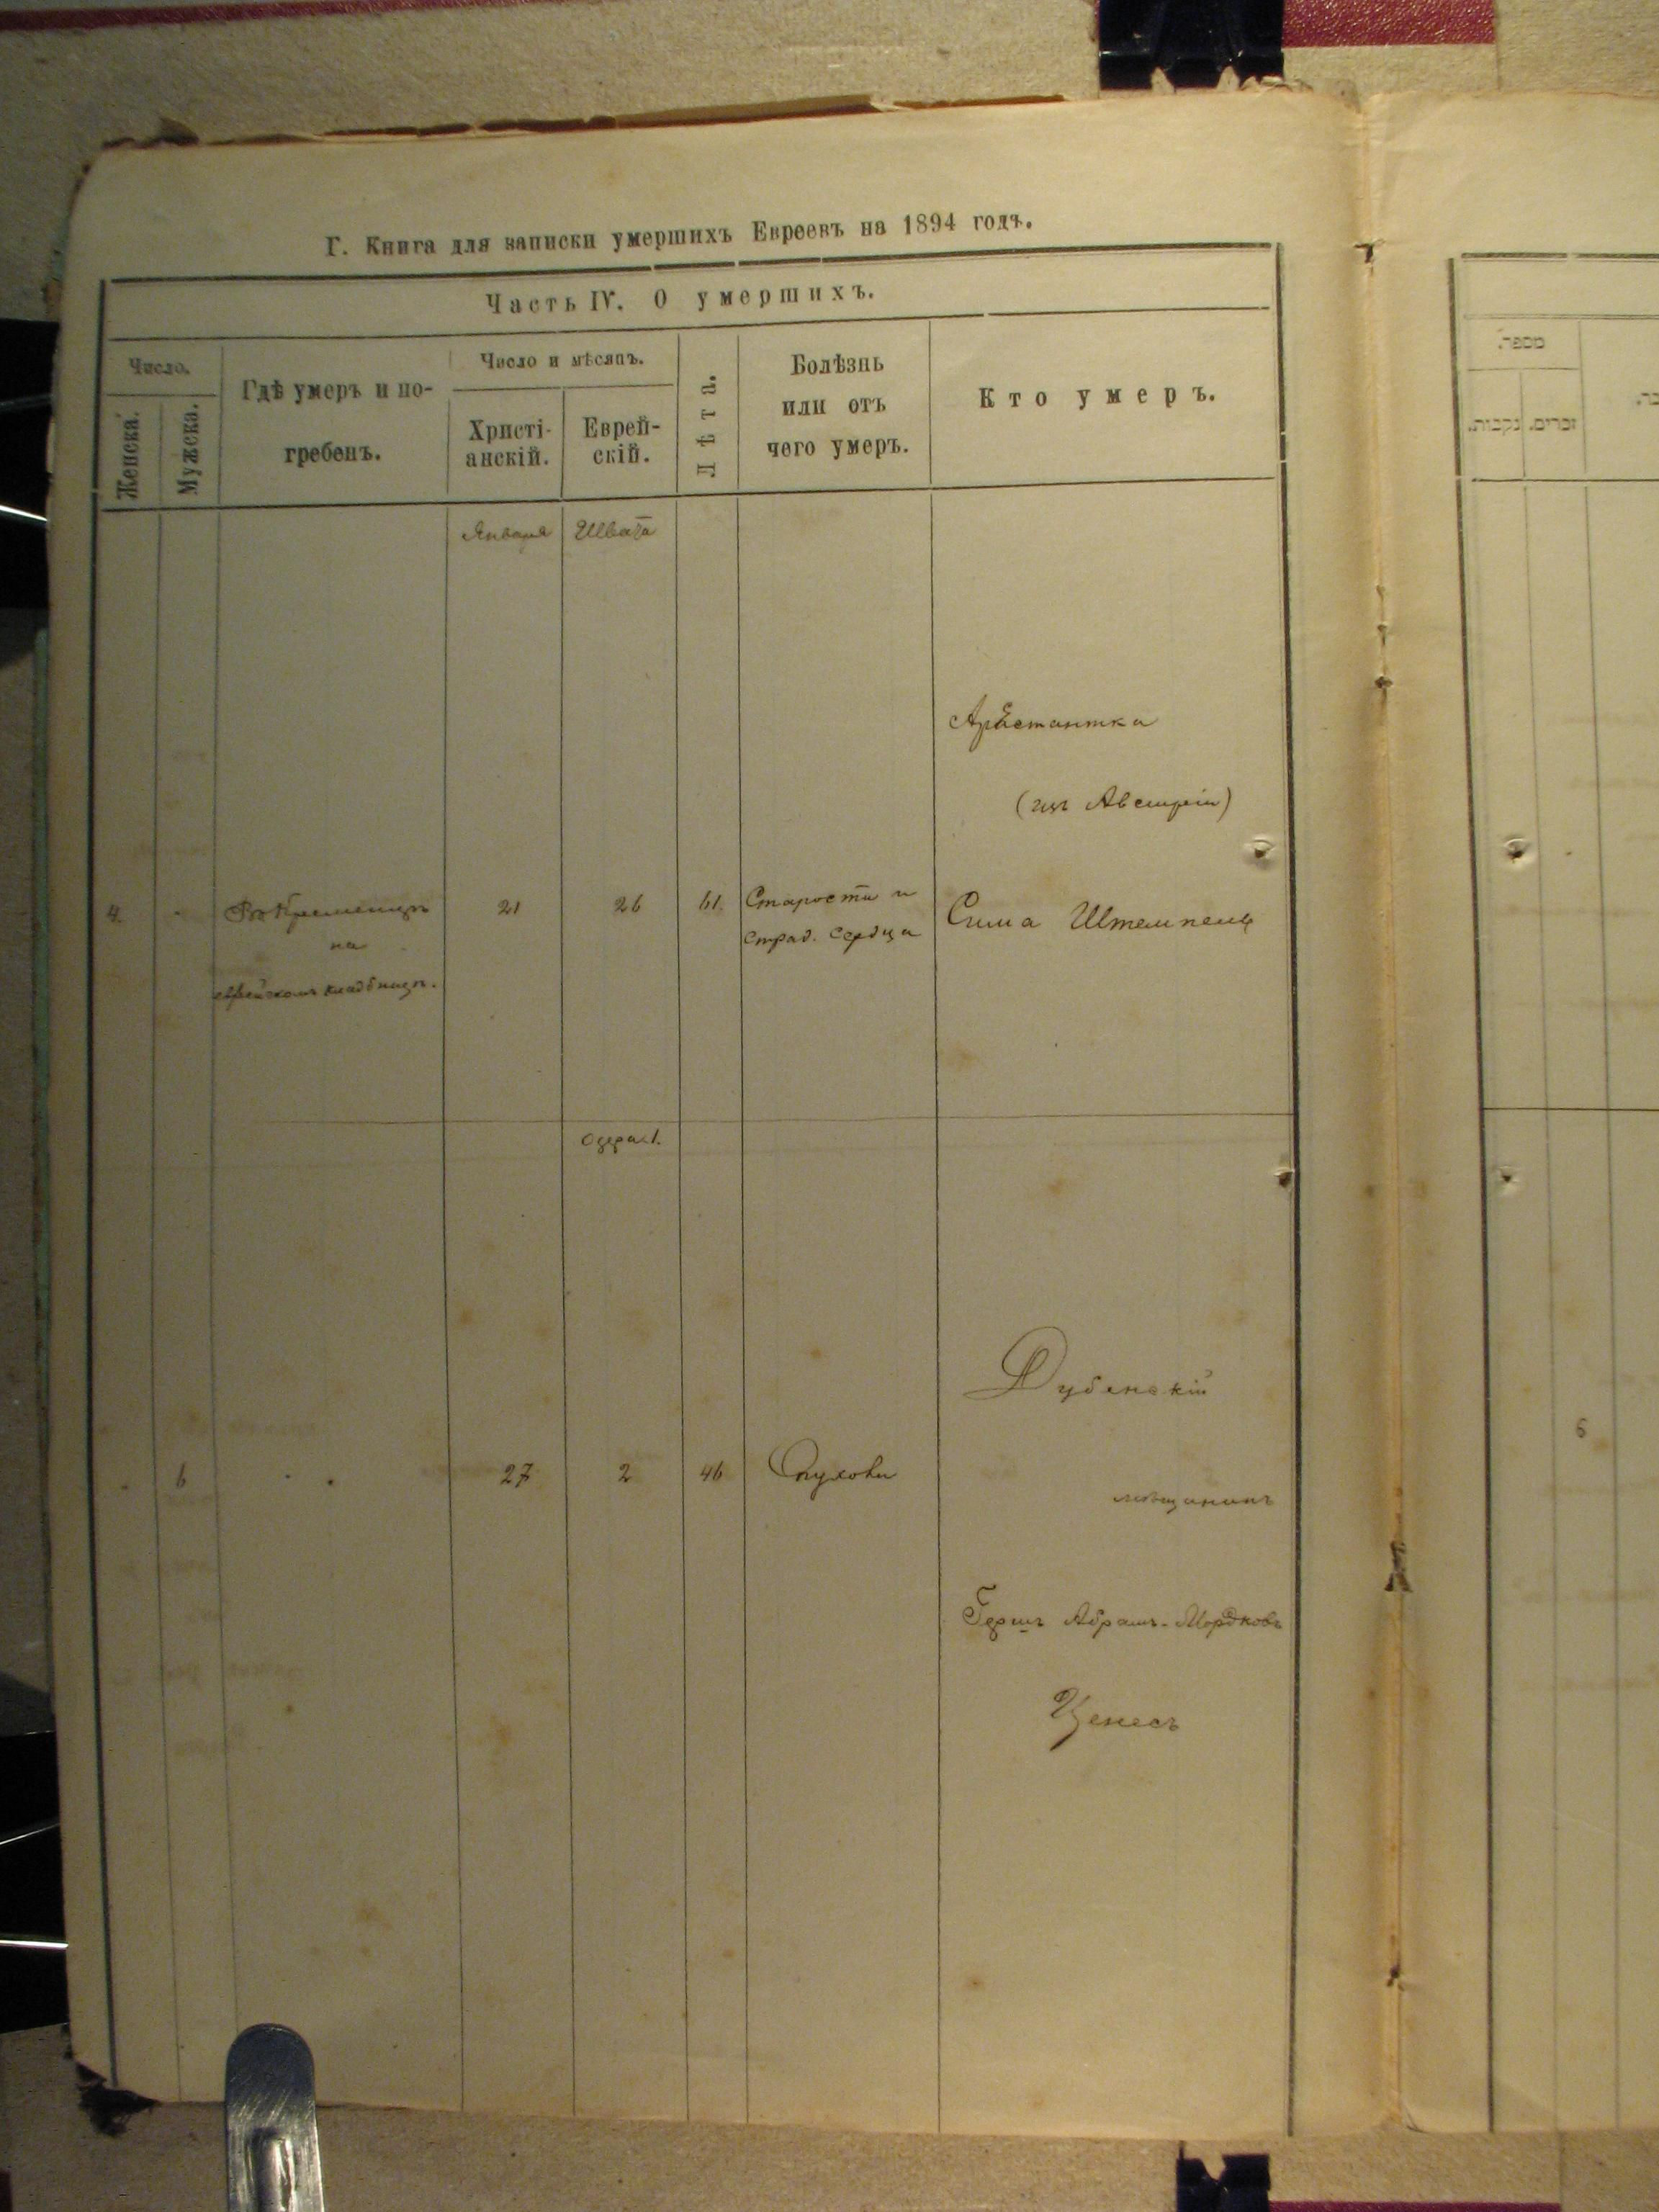 Г. Книга для записки умершихъ Евреевъ на 1894 годъ.
Часть IV. О умершихъ.
Число.
Женска.
Мужска.
Гдѣ умеръ и по-
гребенъ.
Число и мѣсяцъ.
Христі-
анскій.
Еврей-
скій.
Лѣта.
Болѣзнь
или отъ
чего умеръ.
Кто умеръ.
Января
Швата
Арестантка
(изъ Австріи)
4.
Въ Кременцѣ
на
еврейскомъ кладбищѣ.
21
26
61.
Старости и
страд. сердца
Сима Штемпель
Дубенскій
6
27
2
46
Опухоли
мѣщанинъ
Гершъ Абрамъ-Мордковъ
Ценесъ
מספר.
נקבות.
זכרים.
6